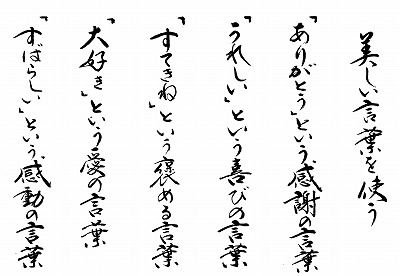 美しい言葉を使う
「ありがとう」という感謝の言葉
「うれしい」という喜びの言葉
「すてきね」という褒める言葉
「大好き」という愛の言葉
「すばらしい」という感動の言葉